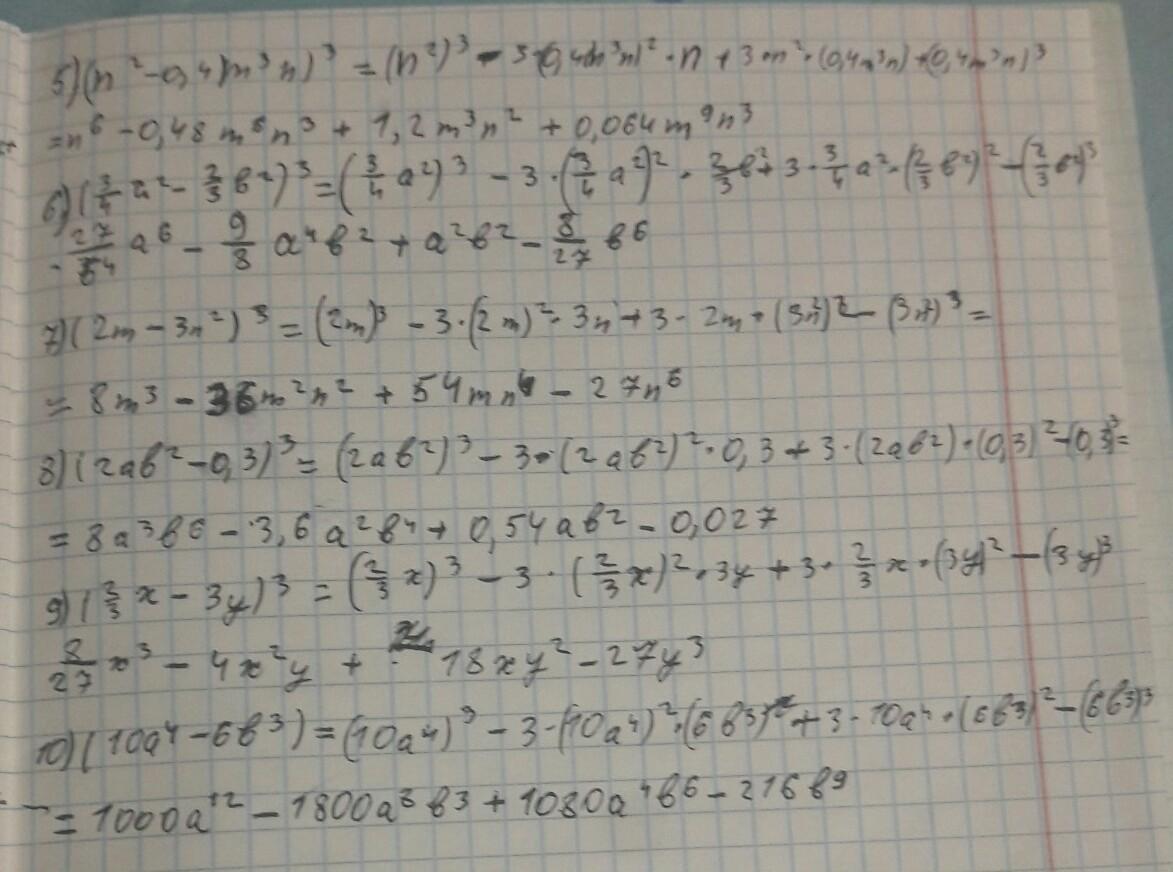 5)(n²-0,4m³n)³ = (n²)³ - 3·(0,4m³n)²·n + 3·n²·(0,4m³n)+(0,4m³n)³
=n⁶ - 0,48m⁶n³ + 1,2m³n² + 0,064m⁹n³
6)(3/4a² - 2/3в²)³ = (3/4a²)³ - 3·(3/4a²)²·2/3в² + 3·3/4a²·(2/3в²)² - (2/3в²)³
27/64a⁶ - 9/8a⁴в² + a²в² - 8/27в⁶
7)(2m - 3n²)³ = (2m)³ - 3·(2m)²·3n² + 3·2m·(3n²)² - (3n²)³ =
= 8m³ - 36m²n² + 54mn⁴ - 27n⁶
8)(2aв² - 0,3)³ = (2aв²)³ - 3·(2aв²)²·0,3 + 3·(2aв²)·(0,3)² - (0,3)³ =
= 8a³в⁶ - 3,6a²в⁴ + 0,54aв² - 0,027
9)(2/3x - 3y)³ = (2/3x)³ - 3·(2/3x)²·3y + 3·2/3x·(3y)² - (3y)³
8/27x³ - 4x²y + 18xy² - 27y³
10)(10a⁴ - 6в³) = (10a⁴)³ - 3·(10a⁴)²·(6в³) + 3·10a⁴·(6в³)² - (6в³)³
= 1000a¹² - 1800a⁸в³ + 1080a⁴в⁶ - 216в⁹